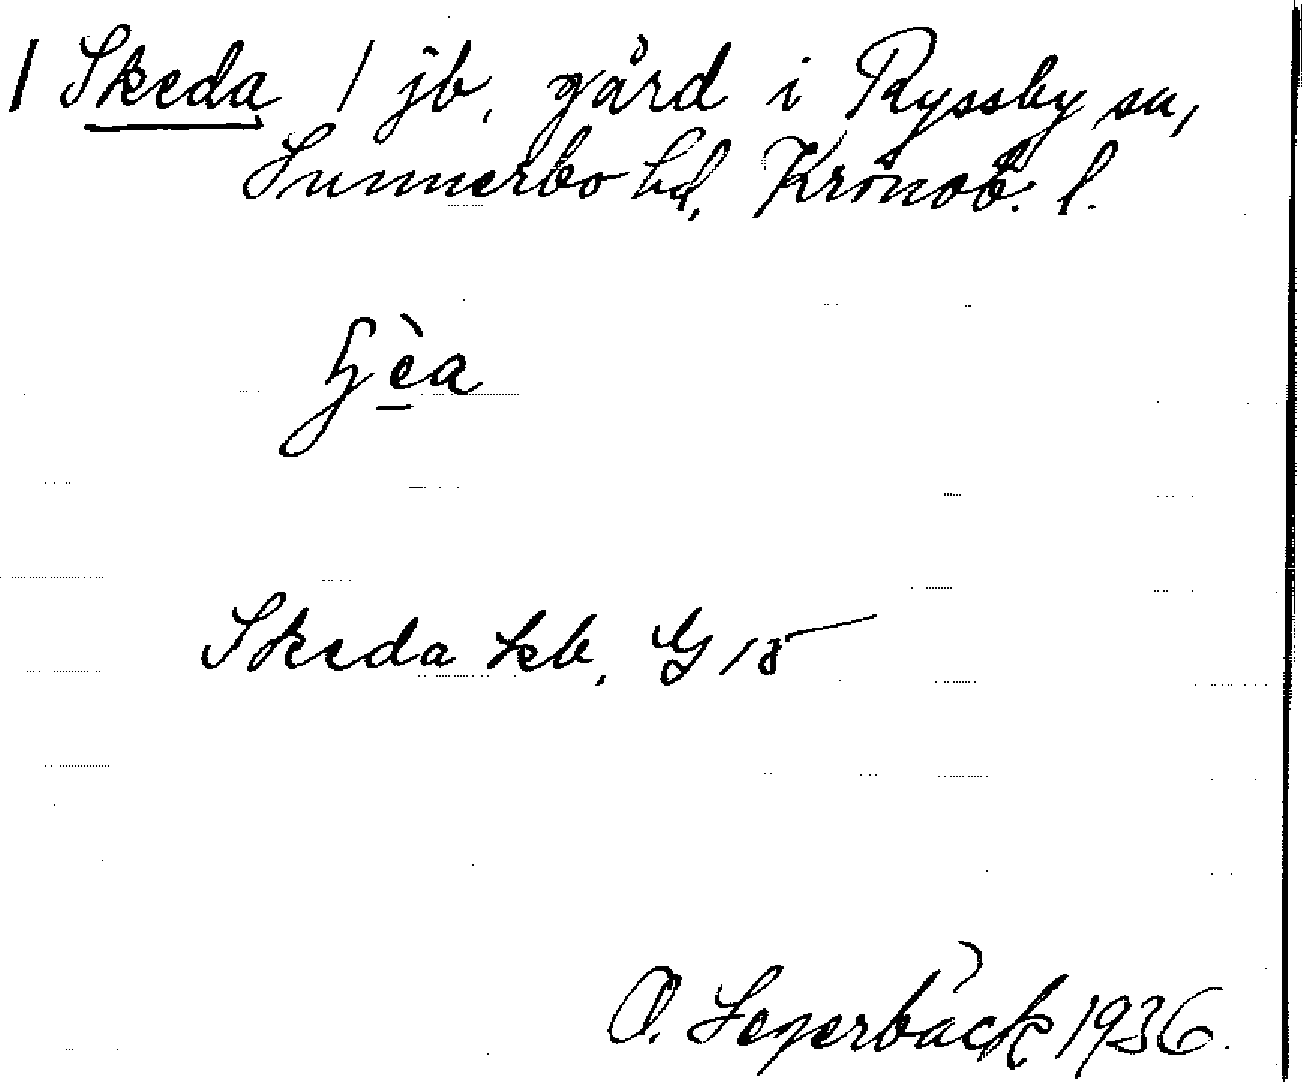 / Skeda / jb, gård i Ryssby sn,
Sunnerbo hd, Kronob. l.
ɧèa
Skeda kb, G 18
O. Segerbäck 1936.